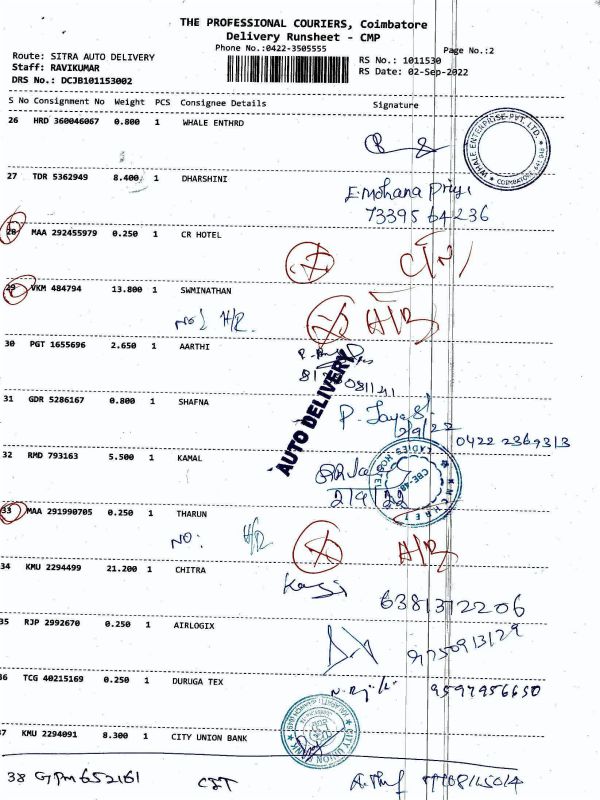 THE PROFESSIONAL COURIERS, Coimbatore
Delivery Runsheet - CMP
Phone No.:0422-3505555
Page No.:2
Route: SITRA AUTO DELIVERY
RS No.: 1011530
Staff: RAVIKUMAR
RS Date: 02-Sep-2022
DRS No.: DCJB101153002
S No Consignment No Weight PCS Consignee Details Signature
26 HRD 360046067 0.800 1 WHALE ENTHRD
WHALE ENTERPRISE PVT. LTD.
COIMBATORE
27 TDR 5362949 8.400 1 DHARSHINI
E. Mohana Priya
73395 64236
28 MAA 292455979 0.250 1 CR HOTEL
29 VKM 484794 13.800 1 SWMINATHAN
No: H/R. A/R
30 PGT 1655696 2.650 1 AARTHI
AUTO DELIVERY
31 GDR 5286167 0.800 1 SHAFNA
2/9/22
0422 2369313
32 RMD 793163 5.500 1 KAMAL
LADIES HOSTEL
2/9/22
33 MAA 291990705 0.250 1 THARUN
NO: H/R A/R
34 KMU 2294499 21.200 1 CHITRA
6381312206
35 RJP 2992670 0.250 1 AIRLOGIX
9750913129
36 TCG 40215169 0.250 1 DURUGA TEX
9597956650
37 KMU 2294091 8.300 1 CITY UNION BANK
CITY UNION BANK
38 GPM 652161 CIT